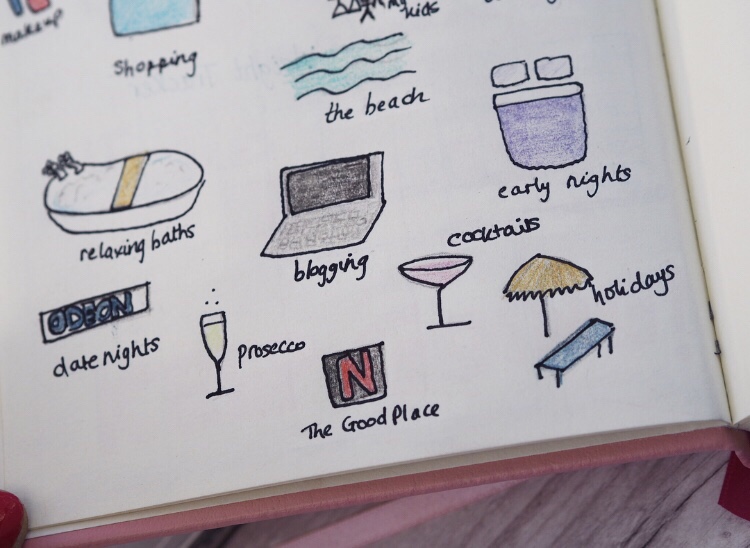 makeup
my
kids
Shopping
the beach
early nights
relaxing baths
blogging
cocktails
holidays
ODEON
date nights
prosecco
N
The Good Place